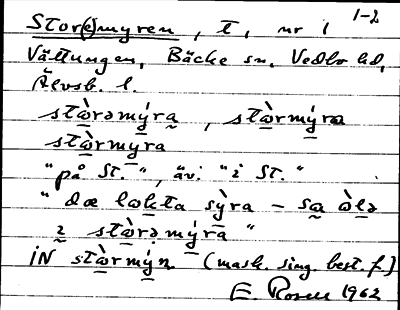 1-2
Stor(e)myren, t, nr 1
Vättungen, Bäcke sn, Vedbo hd,
Älvsb. l.
stὼrəmýra, stὼrmýra
stὼrmyra
"på St.", äv. "i St."
"dæ lokta sỳra – sa ὼlə
i stὼrəmýra"
IN stὼrmýn (mask. sing. best. f.)
E. Rosell 1962